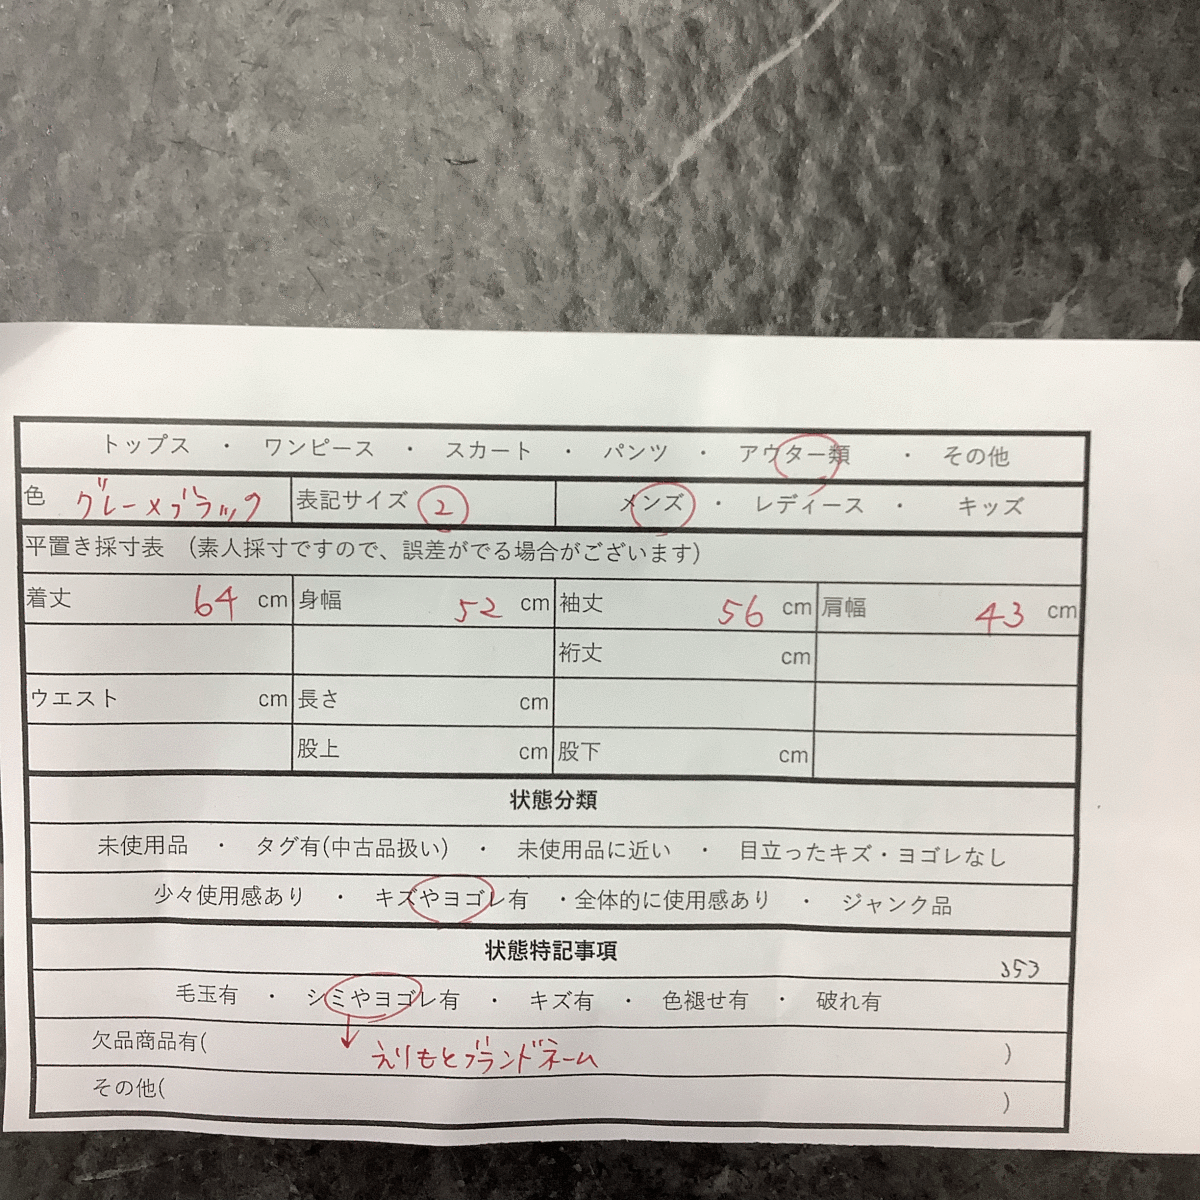 トップス ・ ワンピース ・ スカート ・ パンツ ・ アウター類 ・ その他
色 グレー×ブラック 表記サイズ 2 メンズ ・ レディース ・ キッズ
平置き採寸表 (素人採寸ですので、誤差がでる場合がございます)
着丈 64 cm 身幅 52 cm 袖丈 56 cm 肩幅 43 cm
裄丈 cm
ウエスト cm 長さ cm
股上 cm 股下 cm
状態分類
未使用品 ・ タグ有(中古品扱い) ・ 未使用品に近い ・ 目立ったキズ・ヨゴレなし
少々使用感あり ・ キズやヨゴレ有 ・全体的に使用感あり ・ ジャンク品
状態特記事項
353
毛玉有 ・ シミやヨゴレ有 ・ キズ有 ・ 色褪せ有 ・ 破れ有
欠品商品有( )
えりもとブランドネーム
その他( )